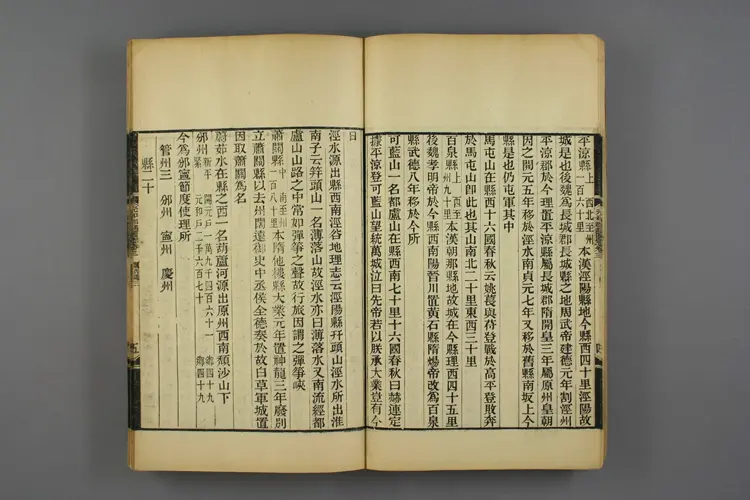 平涼縣上西至州一百六十里本漢涇陽縣地今縣西四十里涇陽故
城是也後魏爲長城郡長城縣之地周武帝建德元年割涇州
平涼郡於今理置平涼縣屬長城郡隋開皇三年屬原州皇朝
因之開元五年移於涇水南貞元七年又移於舊縣南坂上今
縣是也仍屯軍其中
馬屯山在縣西十六國春秋云姚萇與苻登戰於高平登敗奔
於馬屯山卽此也其山南北二十里東西三十里
百泉縣上西至州九十里本漢朝那縣地故城在今縣理西四十五里
後魏孝明帝於今縣西南陽晉川置黃石縣隋煬帝改爲百泉
縣武德八年移於今所
可藍山一名都盧山在縣西南七十里十六國春秋曰赫連定
據平涼登可藍山望統萬城泣曰先帝若以朕承大業豈有今
日
涇水源出縣西南涇谷地理志云涇陽縣幵頭山涇水所出淮
南子云幷頭山一名薄落山故涇水亦曰薄落水又南流經都
盧山山路之中常如彈箏之聲故行旅因謂之彈箏峽
蕭關縣中南至州一百八十里本隋他樓縣大業元年置神龍三年廢別
立蕭關縣以去州闊遠御史中丞侯全德奏於故白草軍城置
因取蕭關爲名
蔚茹水在縣之西一名葫蘆河源出原州西南頹沙山下
邠州新平緊開元戶一萬九千四百六十一鄉四十九
元和戶二千六百七十鄉四十九
今爲邠寧節度使理所
管州三邠州寧州慶州
縣二十